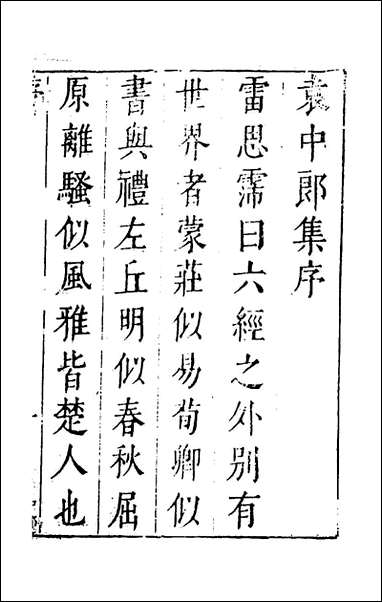 袁中郎集序
雷思霈曰六經之外別有
世界者蒙莊似易荀卿似
書與禮左丘明似春秋屈
原離騷似風雅皆楚人也